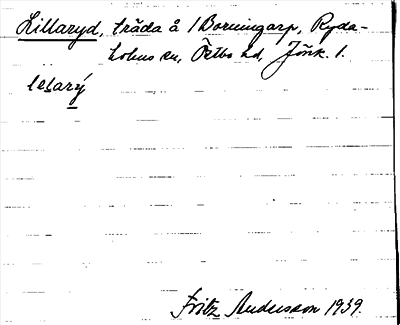 Lillaryd, träda å 1 Borningarp, Ryda-
holms sn, Östbo hd, Jönk. l.
leḷarý
Fritz Andersson 1939.